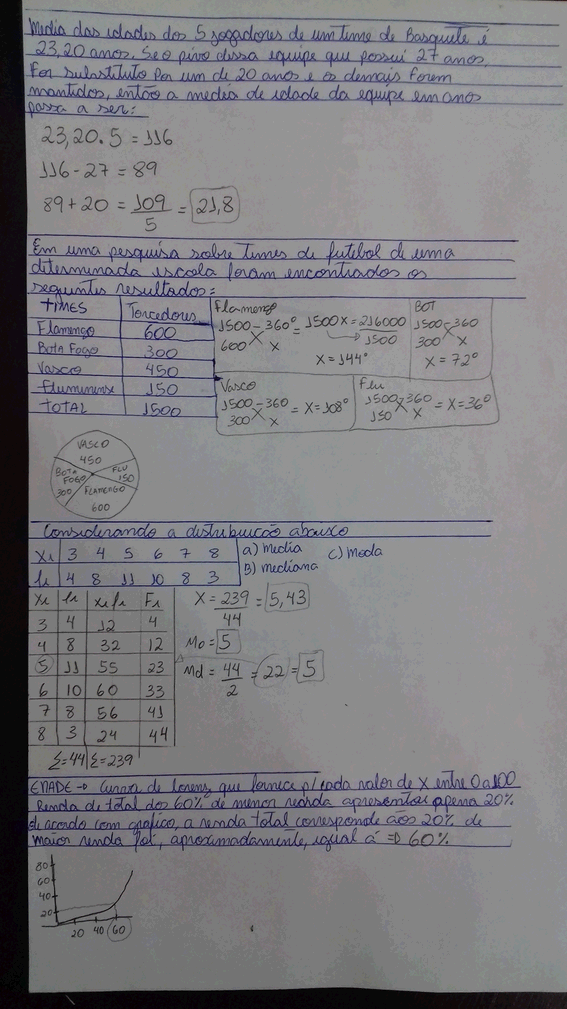 Media das idades dos 5 jogadores de um time de Basquete é
23,20 anos. Se o pivo dessa equipe que possui 27 anos.
For substituto por um de 20 anos e os demais forem
mantidos, então a media de idade da equipe em anos
passa a ser:
23,20.5 = 116
116-27 = 89
89+20 = 109/5 = 21,8
Em uma pesquisa sobre times de futebol de uma
determinada escola foram encontrados os
seguintes resultados:
TIMES Torcedores
Flamengo 600
Bota Fogo 300
Vasco 450
Fluminense 150
TOTAL 1500
Flamengo
1500 - 360° = 1500X = 216000
600 X 1500
X = 144°
BOT
1500 - 360
300 X
X = 72°
Vasco
1500 - 360 = X = 108°
300 X
Flu
1500 360 = X = 36°
150 X
VASCO
450
BOTA FOGO
300
FLU
150
FLAMENGO
600
Considerando a distribuição abaixo
Xi 3 4 5 6 7 8
fi 4 8 11 10 8 3
a) Media
B) mediana
c) Moda
Xi fi xifi Fi
3 4 12 4
4 8 32 12
5 11 55 23
6 10 60 33
7 8 56 41
8 3 24 44
Σ=44 Σ=239
X = 239/44 = 5,43
Mo = 5
Md = 44/2 = 22 = 5
ENADE → Curva de Lorenz, que fornece p/ cada valor de X entre 0 a 100
Renda de total dos 60% de menor renda apresentar apena 20%
de acordo com grafico, a renda total corresponde aos 20% de
maior renda foi, aproximadamente, igual á ⇒ 60%.
80
60
40
20
20 40 60